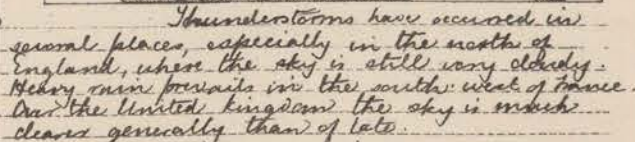 Thunderstorms have occurred in
several places, especially in the north of
England, where the sky is still very cloudy.
Heavy rain prevails in the south west of France.
Over the United Kingdom the sky is much
clearer generally than of late.